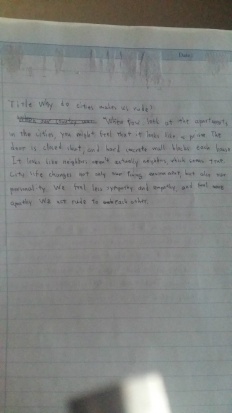 Title Why do cities makes us rude?
When you look at the apartments
in the cities, you might feel that it looks like a prison. The
door is closed shut, and hard concrete wall blocks each house
It looks like neighbors aren't actually neighbors, which
City life changes not only our living environment, but also our
personality. We feel less sympathy and empathy, and feel more
apathy. We act rude to each other.